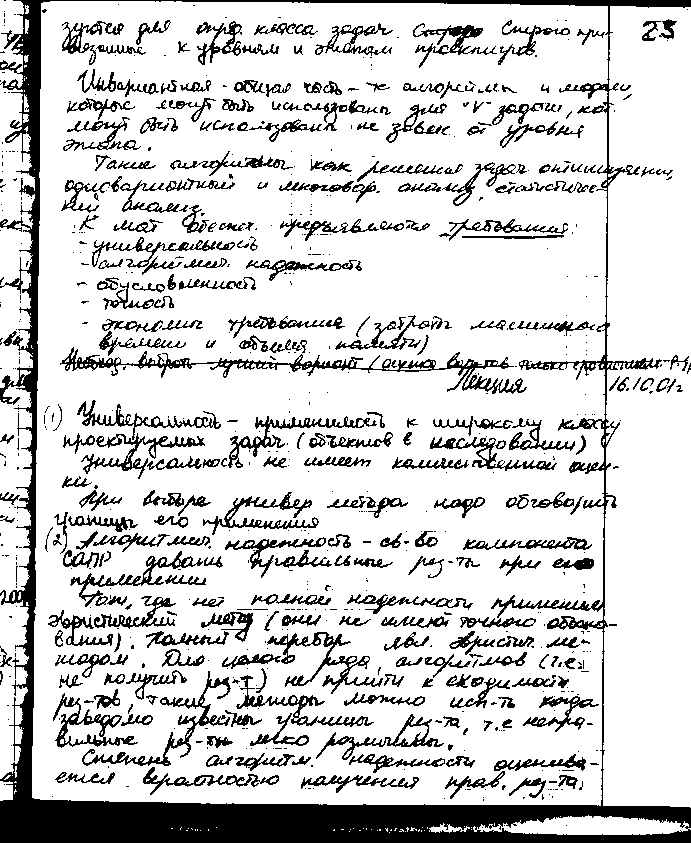 зуются для опред. класса задач Строго при- 23
вязанные к уровням и этапам проектиров.
Инвариантная - общая часть - к алгоритмы и модели,
которые могут быть использованы для "V" задачи, кот.
могут быть использованы не завис от уровня
этапа.
Такие алгоритмы как решения задач оптимизации,
одновариантный и многовар. анализ, статистичес-
кий анализ.
К мат обеспеч. предъявляются требования:
- универсальность
- алгоритмич. надежность
- обусловленность
- точность
- экономич требования (затраты машинного
времени и объема памяти)
выбрать лучший вариант (оценка
Лекция 16.10.01г
(1) Универсальность - применимость к широкому классу
проектируемых задач (объектов в исследовании)
Универсальность не имеет количественной оцен-
ки.
При выборе универ метода надо обговорить
границы его применения
(2) Алгоритмич. надежность - св-во компонента
САПР давать правильные рез-ты при его
применении
Там, где нет полной надежности применим
эвристический метод (они не имеют точного обосно-
вания). Полный перебор явл. эвристич. ме-
тодом. Для целого ряда алгоритмов (т.е.
не получить рез-т) не прийти к сходимости
рез-тов, такие методы можно исп-ть когда
заведомо известны границы рез-та, т.е непра-
вильные рез-ты легко различимы.
Степень алгоритм. надежности оценива-
ется вероятностью получения прав. рез-та.